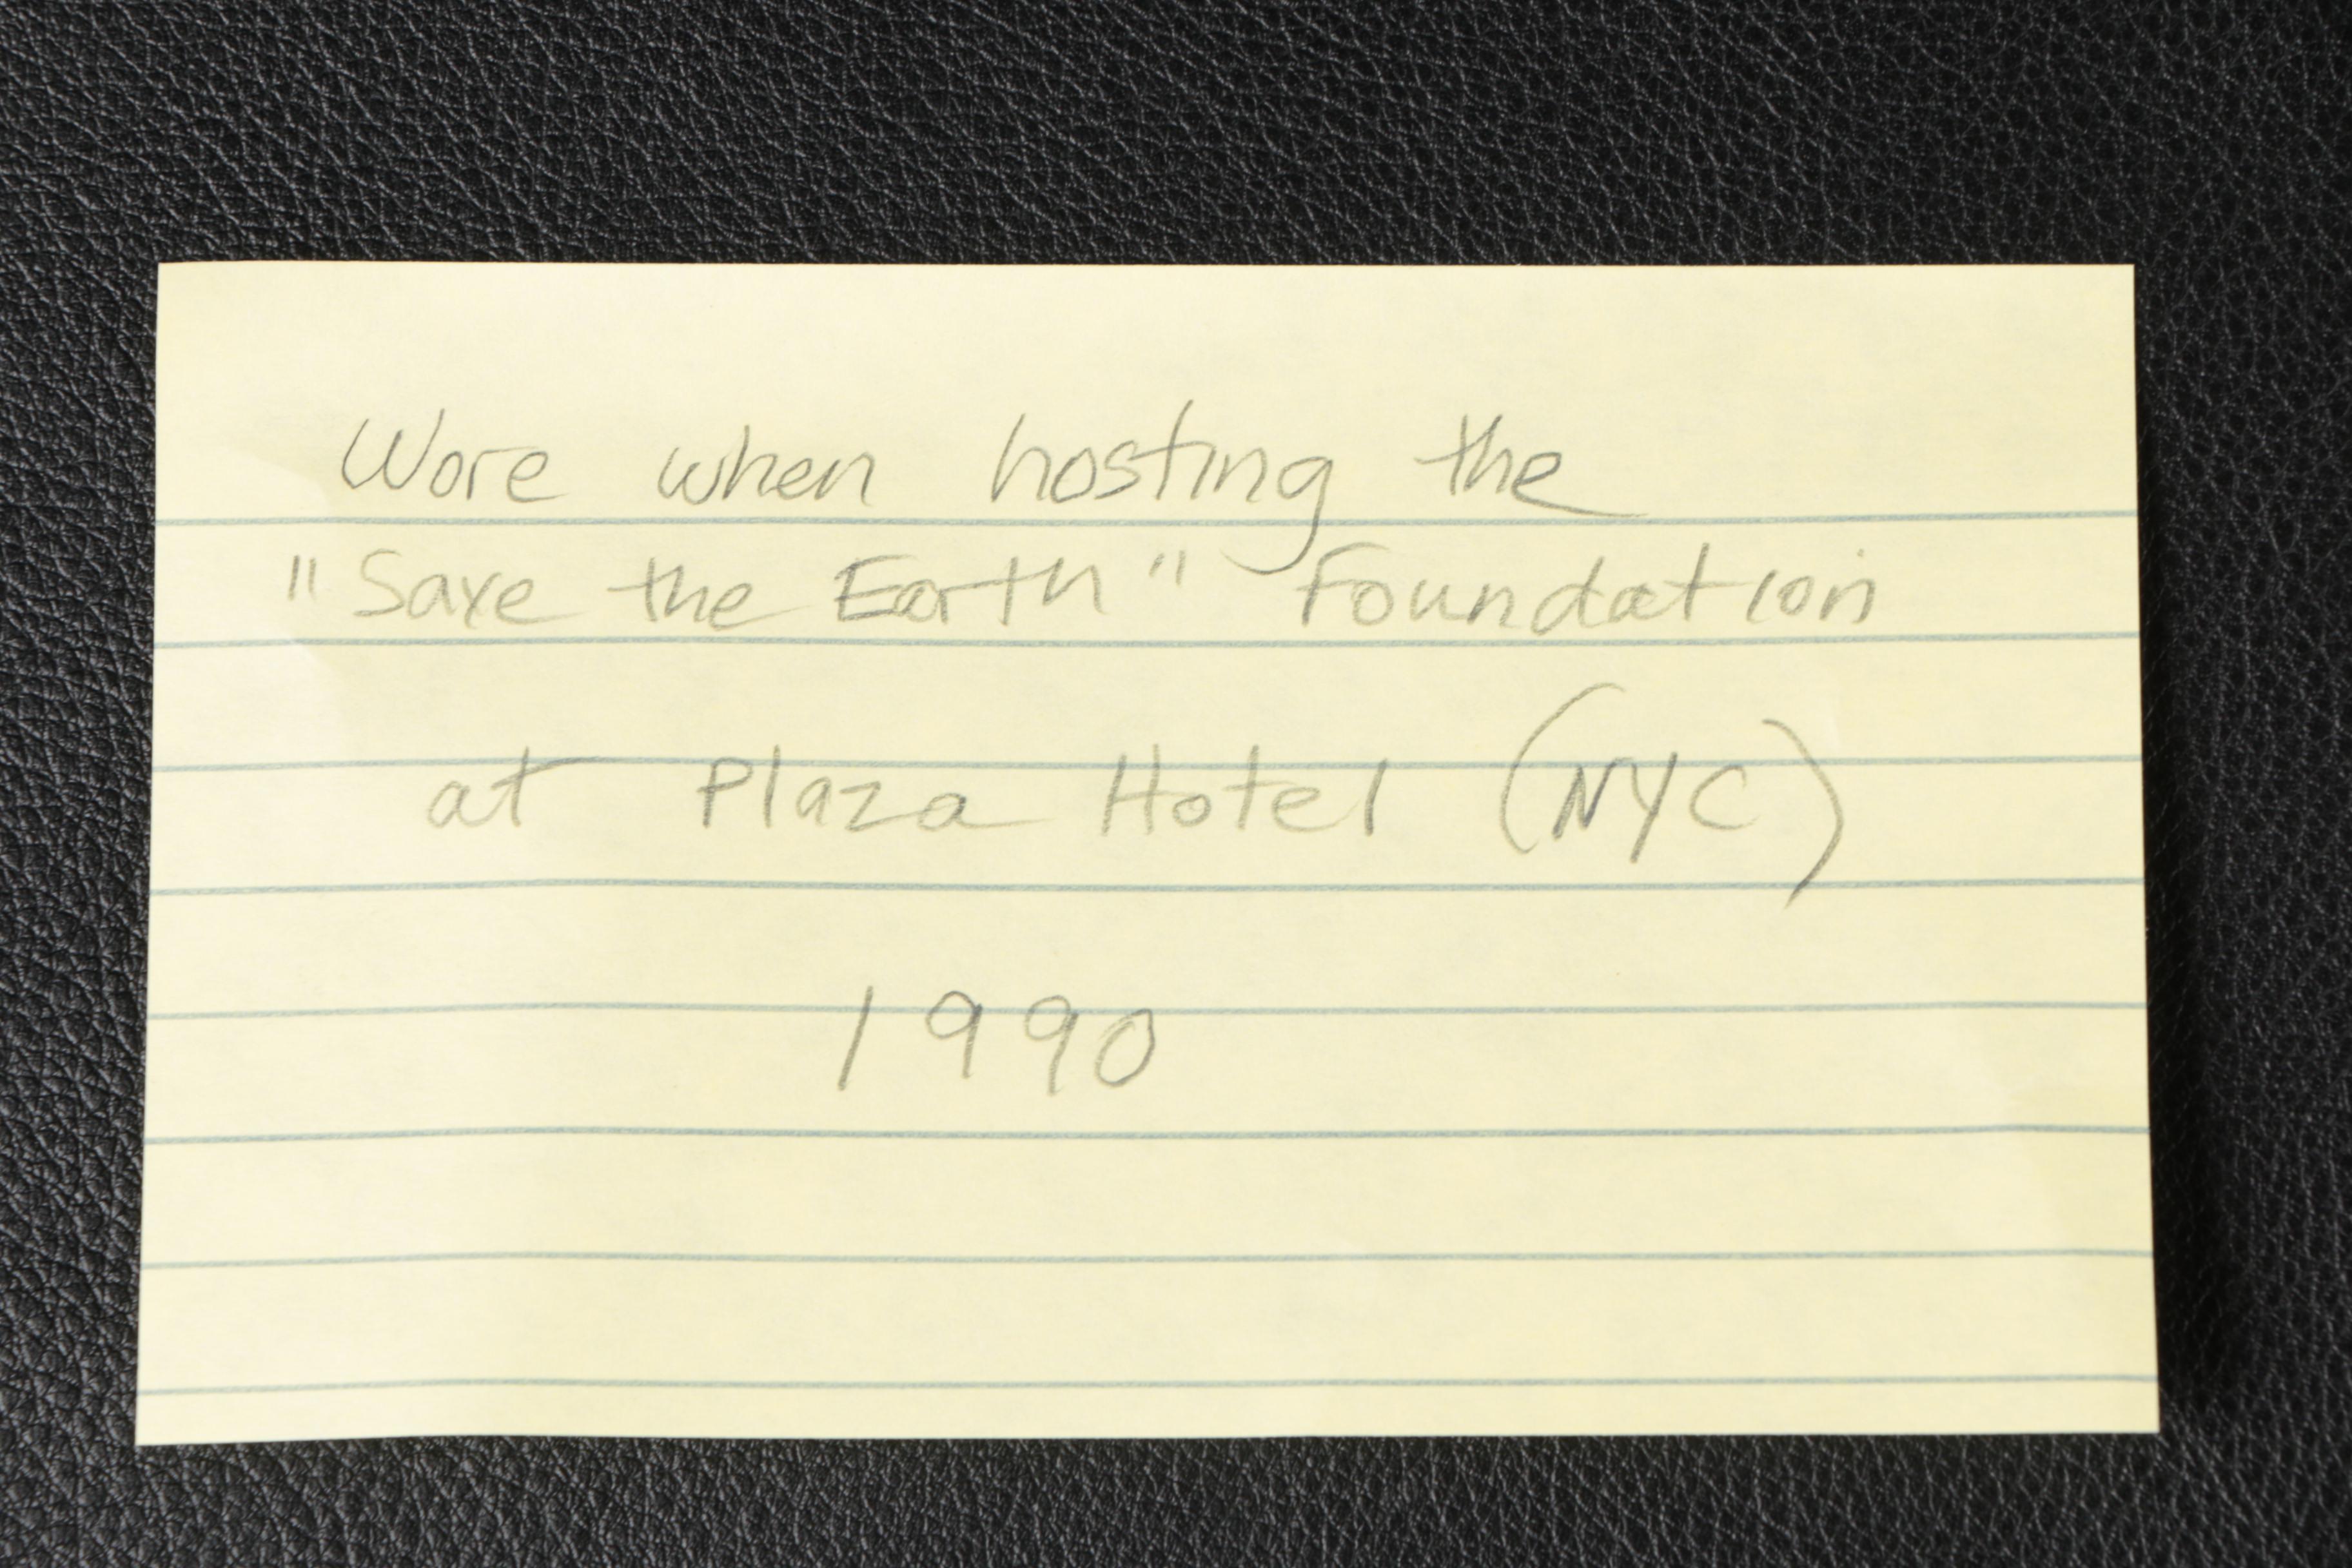 Wore when hosting the
"Save the Earth" Foundation
at Plaza Hotel (NYC)
1990